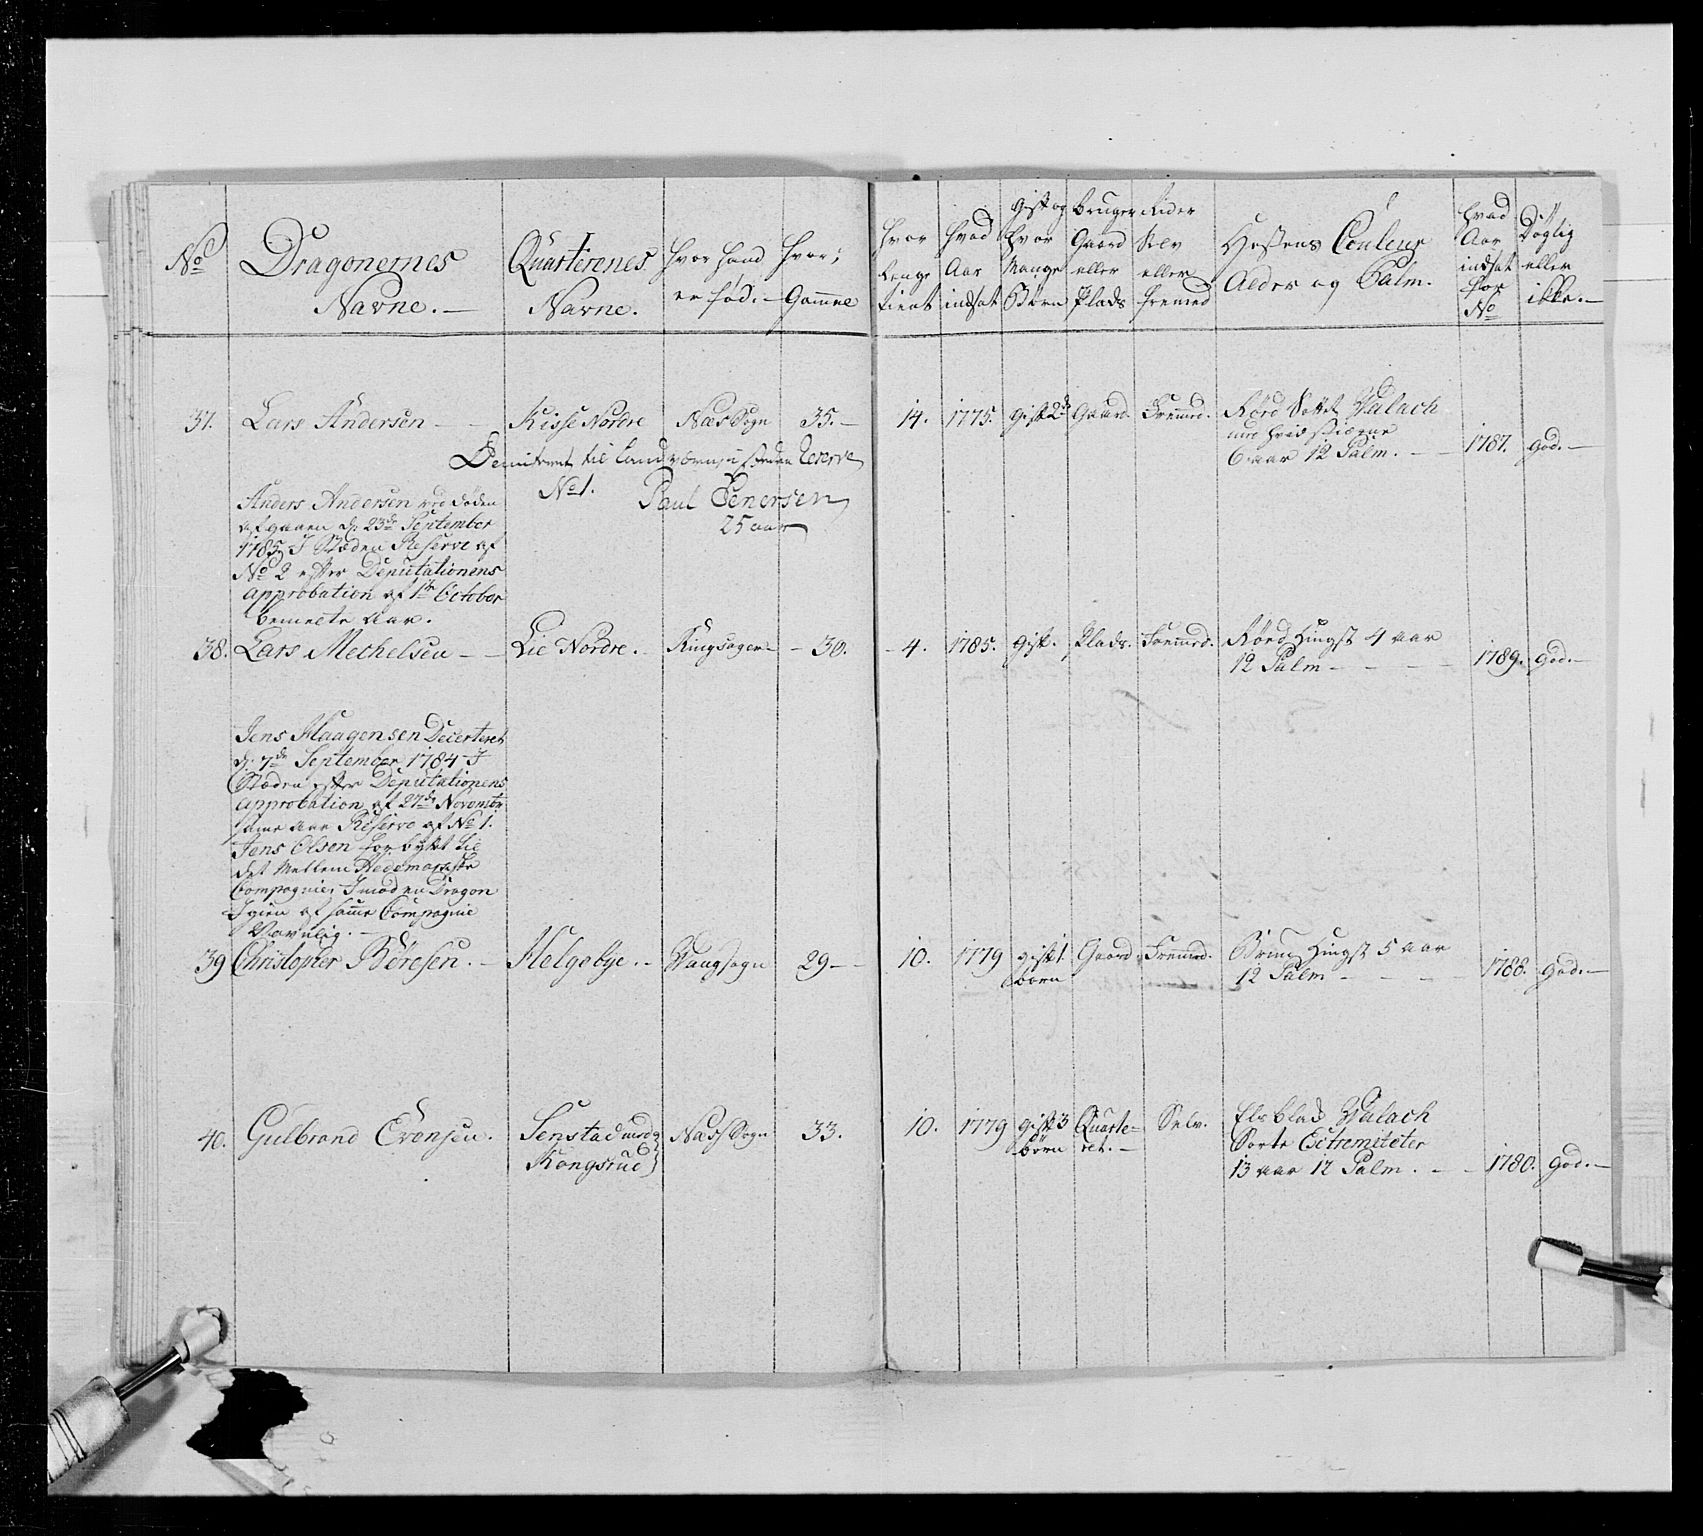 No
Dragonernes
Navne.
Quarterenes
Navne.
hvor hand
er fød.
hvor
Gammel
hvor
Lenge
tient
hvad
Aar
indsat
Gift og
hvor
Mange
Børn
Bruger
Gaard
eller
Plads
Rider
Selv
eller
fremed
Hestens Couleur
Alder og Palm.
hvad
Aar
indsat
for
No
Dygtig
eller
ikke.
37. Lars Andersen Kisse Nordre Næs Sogn 35. 14. 1775. gift 2de Gaard. Fremed. Rød Valach
med hvid stierne
6 aar 12 Palm. 1787. god.
til Landværn, i steden Reserve
No 1. Paul Eenersen
25 aar
Anders Andersen ved døden
afgaaen d. 23de September
1785, I Stæden Reserve af
No 2 efter Deputationens
approbation af 1te October
bemelte Aar.
38. Lars Mechelsen Lie Nordre. Ringsager 30. 4. 1785. gift. Plads. Fremed. Rød Hingst 4 aar
12 Palm 1789. god.
Jens Haagensen Decerteret
d. 7de September 1784 I
Stæden efter Deputationens
approbation af 27de Novembr
samme aar Reserve af No 1.
Jens Olsen forbytt til
det Mellem Hedemarkske
Compagnie, Imod en Dragon
Igien af samme Compagnie
Navnlig.
39 Christopher Børesen. Helgebye. Vangsogn 29 10. 1779 gift 1
børn Gaard Fremed. Bruun Hingst 5 aar
12 Palm 1788. god.
40. Gulbrand Evensen. Senstad med
Kongsrud Næs Sogn 33. 10. 1779 gift 3
børn Quarte-
ret. Selv. Elsblad Valach
Sorte Extremiteter
13 aar 12 Palm. 1780. god.